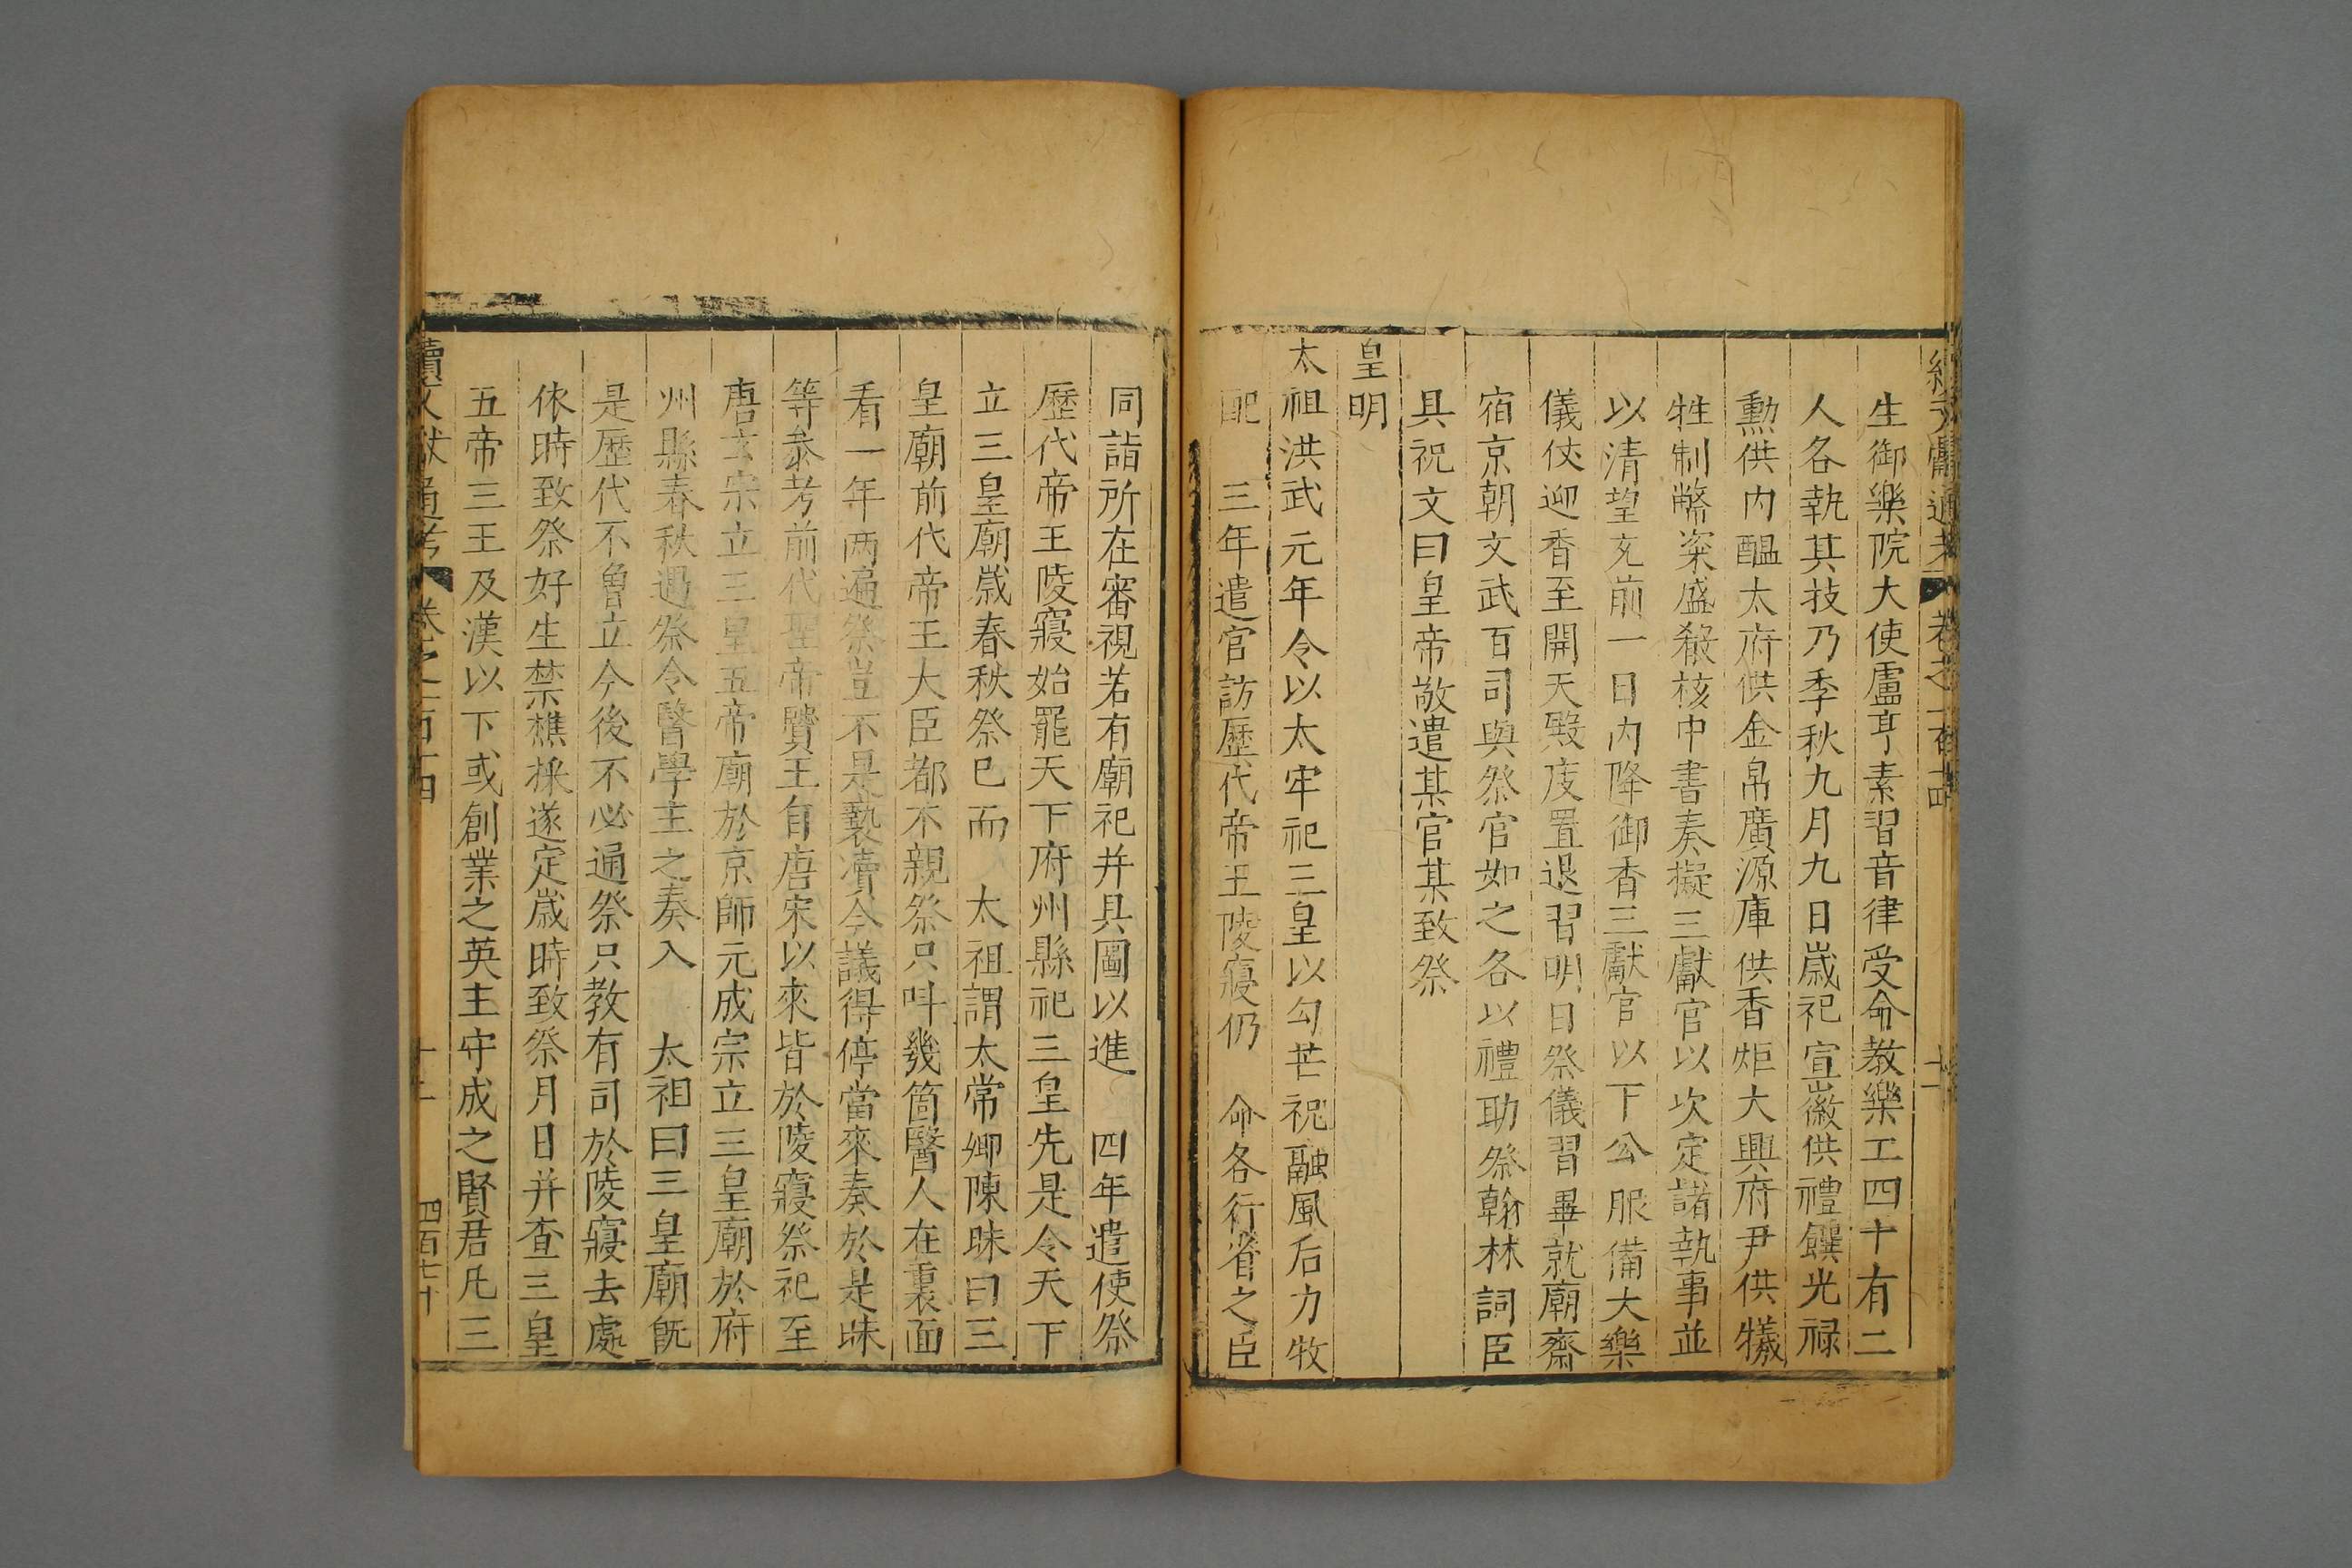 生御樂院大使盧亨素習音律受命教樂工四十有二
人各執其技乃季秋九月九日歲祀宣徽供禮饌光祿
勳供內醞太府供金帛廣源庫供香炬大興府尹供犧
牲制幣粢盛殽核中書奏擬三獻官以次定諸執事並
以清望充前一日內降御香三獻官以下公服備大樂
儀仗迎香至開天殿庋置退習明日祭儀習畢就廟齋
宿京朝文武百司與祭官如之各以禮助祭翰林詞臣
具祝文曰皇帝敬遣某官某致祭
皇明
太祖洪武元年令以太牢祀三皇以勾芒祝融風后力牧
配 三年遣官訪歷代帝王陵寢仍 命各行省之臣
同詣所在審視若有廟祀并具圖以進 四年遣使祭
歷代帝王陵寢始罷天下府州縣祀三皇先是令天下
立三皇廟歲春秋祭已而 太祖謂太常卿陳昧曰三
皇廟前代帝王大臣都不親祭只呌幾箇醫人在裏面
看一年兩遍祭豈不是褻瀆今議得停當來奏於是昧
等叅考前代聖帝賢王自唐宋以來皆於陵寢祭祀至
唐玄宗立三皇五帝廟於京師元成宗立三皇廟於府
州縣春秋遇祭令醫學主之奏入 太祖曰三皇廟旣
是歷代不曾立今後不必通祭只教有司於陵寢去處
依時致祭好生禁樵採遂定歲時致祭月日并查三皇
五帝三王及漢以下或創業之英主守成之賢君凡三
續文獻通考 卷之一百十四 十二 四百七十